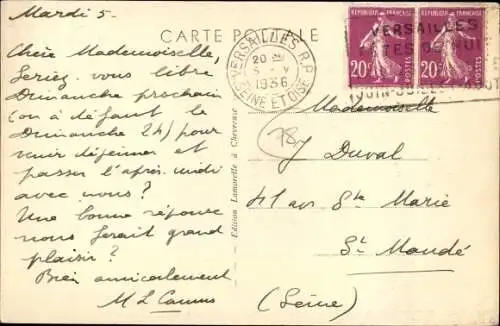 Mardi 5-
CARTE POSTALE
Chère Mademoiselle,
Seriez-vous libre
Dimanche prochain
(ou à défaut le
Dimanche 24) pour
venir déjeuner et
passer l'après-midi
avec nous?
Une bonne réponse
nous ferait grand
plaisir?
Bien amicalement
M L Camus
Edition Lamorelle à Chevreuse
VERSAILLES R.P.
20
5 - V
1936
SEINE ET OISE
REPUBLIQUE FRANÇAISE
20c
POSTES
REPUBLIQUE FRANÇAISE
20c
POSTES
VERSAILLES
JUIN-JUILLET
78
Mademoiselle
Y Duval
41 av Ste Marie
St Mandé
(Seine)